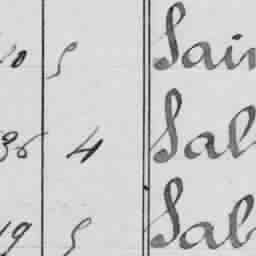 10 5 Sain
36 4 Sal
19 5 Sab